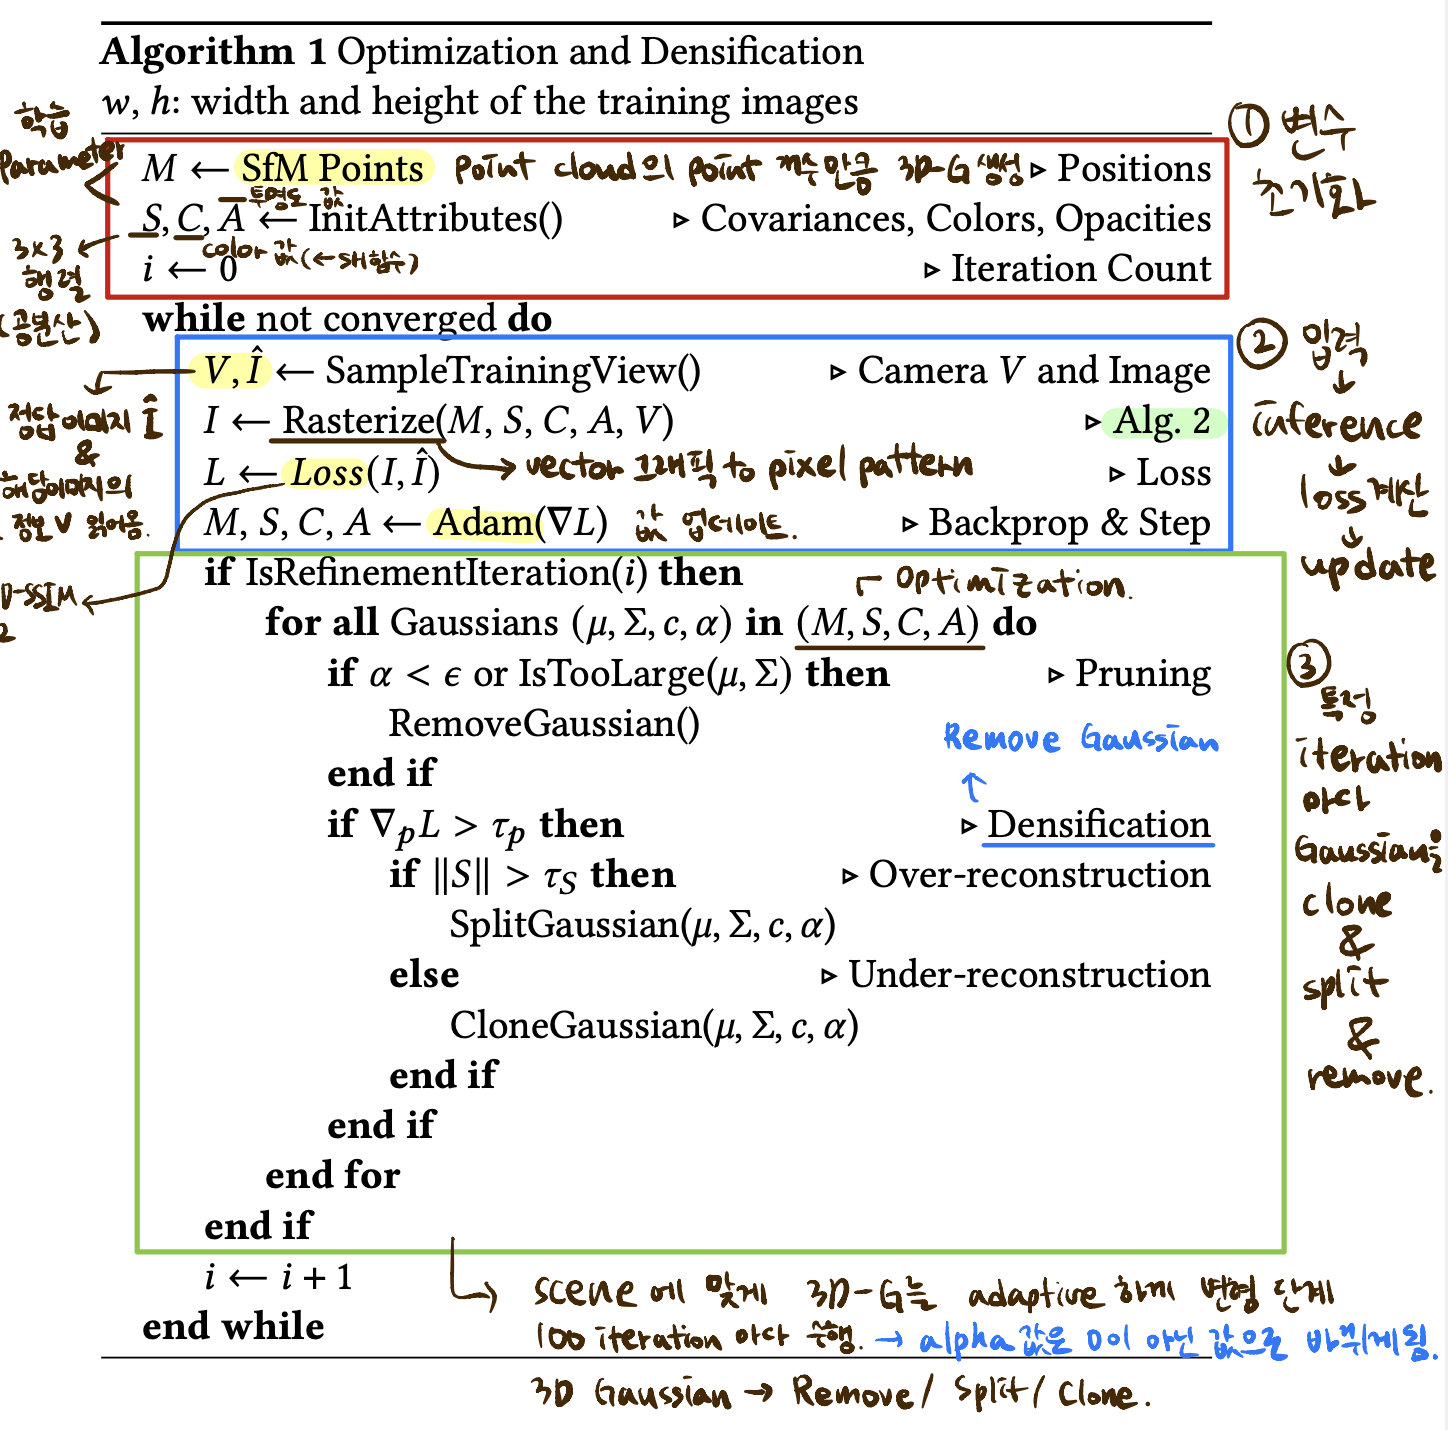 Algorithm 1 Optimization and Densification
w, h: width and height of the training images
학습
Parameter
M ← SfM Points point cloud의 point 개수만큼 3D-G 생성 ▷ Positions
투명도 값
S, C, A ← InitAttributes() ▷ Covariances, Colors, Opacities
3x3
행렬
(공분산)
color 값(←SH함수)
i ← 0 ▷ Iteration Count
① 변수
초기화
while not converged do
V, Î ← SampleTrainingView() ▷ Camera V and Image
정답이미지 Î
&
해당이미지의
정보 V 읽어옴.
I ← Rasterize(M, S, C, A, V) ▷ Alg. 2
→ vector 그래픽 to pixel pattern
L ← Loss(I, Î) ▷ Loss
D-SSIM
2
M, S, C, A ← Adam(∇L) 값 업데이트. ▷ Backprop & Step
② 입력
↓
inference
↓
loss계산
↓
update
if IsRefinementIteration(i) then
optimization.
for all Gaussians (μ, Σ, c, α) in (M, S, C, A) do
if α < ϵ or IsTooLarge(μ, Σ) then ▷ Pruning
RemoveGaussian()
Remove Gaussian
end if
if ∇pL > τp then ▷ Densification
if ‖S‖ > τS then ▷ Over-reconstruction
SplitGaussian(μ, Σ, c, α)
else ▷ Under-reconstruction
CloneGaussian(μ, Σ, c, α)
end if
end if
end for
end if
③
특정
iteration
마다
Gaussian을
clone
&
split
&
remove.
i ← i + 1
end while
scene에 맞게 3D-G를 adaptive 하게 변형 단계
100 iteration 마다 수행. → alpha 값은 0이 아닌 값으로 바뀌게됨.
3D Gaussian → Remove / Split / Clone.